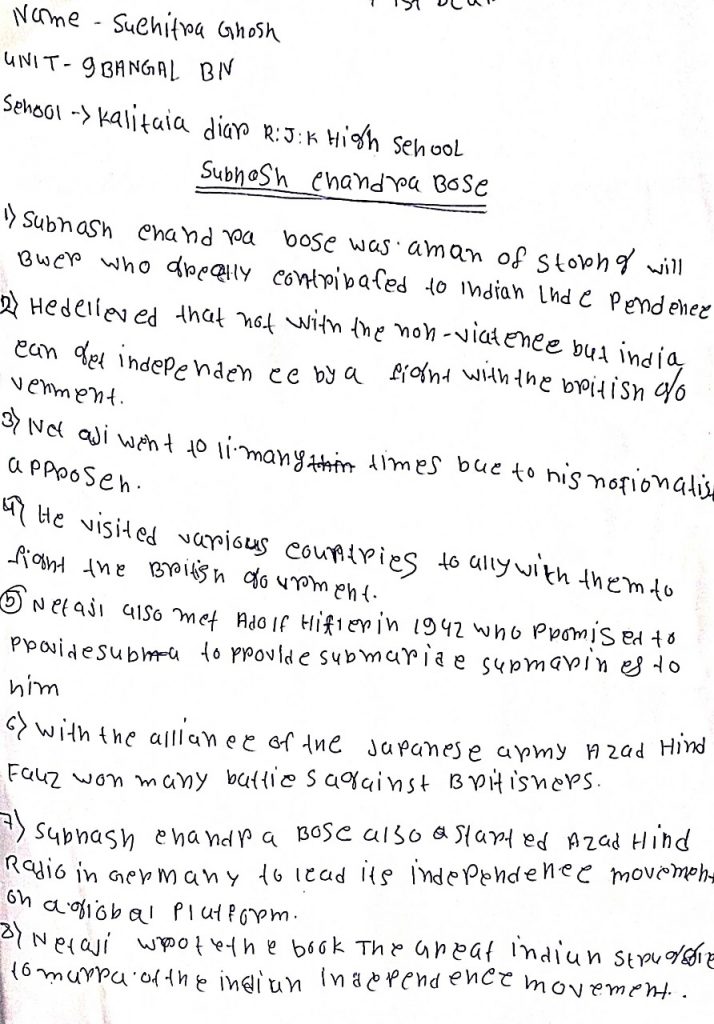 Name - Suchitra Ghosh
UNIT - 9 BANGAL BN
School -> Kalitaia diar R.J.K High School
Subhash Chandra Bose
1) Subhash chandra bose was a man of storng will
Bwer who greatly contribated to Indian Inde Pendence
2) He delieved that not with the non-vialence but india
can get independen ce by a fight with the british go
venment.
3) Net aji went to many times bue to his nationalis
apposeh.
4) He visited various countries to ally with them to
fight the British gournment.
5) Netaji also met Adolf Hitler in 1942 who promised to
provide to provide submariae supmarines to
him
6) With the alliance of the Japanese army Azad Hind
Fauz won many battles against Britishers.
7) Subhash chandra Bose also started Azad Hind
Radio in Germany to lead its independence movement
on a global Platform.
8) Netaji wrote the book The Great indian Struggle
of the indian Independence movement.